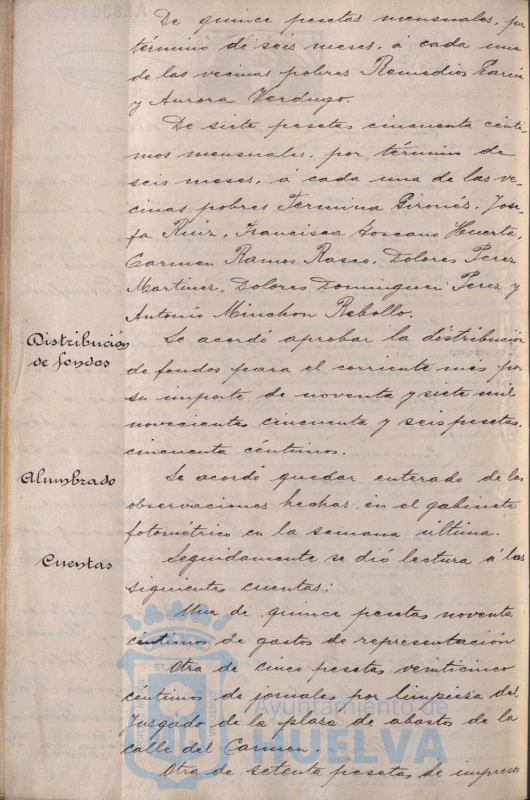 De quince pesetas mensuales, por
término de seis meses, á cada una
de las vecinas pobres Remedios Marin
y Aurora Verdugo.
De siete pesetas cincuenta cénti-
mos mensuales, por término de
seis meses, á cada una de las ve-
cinas pobres Fermina Gironés, Jose-
fa Ruiz, Francisca Toscano Huerta,
Carmen Ramos Rasco, Dolores Perez
Martinez, Dolores Dominguez Perez y
Antonio Minchon Rebollo.
Distribución
de fondos
Se acordó aprobar la distribución
de fondos para el corriente mes por
su importe de noventa y siete mil
novecientas cincuenta y seis pesetas,
cincuenta céntimos.
Alumbrado
Se acordó quedar enterado de las
observaciones hechas en el gabinete
fotométrico en la semana última.
Cuentas
Seguidamente se dió lectura á las
siguientes cuentas:
Una de quince pesetas noventa
céntimos de gastos de representación
Otra de cinco pesetas veinticinco
céntimos de jornales por limpiesa del
Juzgado de la plaza de abastos de la
calle del Carmen.
Otra de setenta pesetas de impresos
Ayuntamiento de
HUELVA